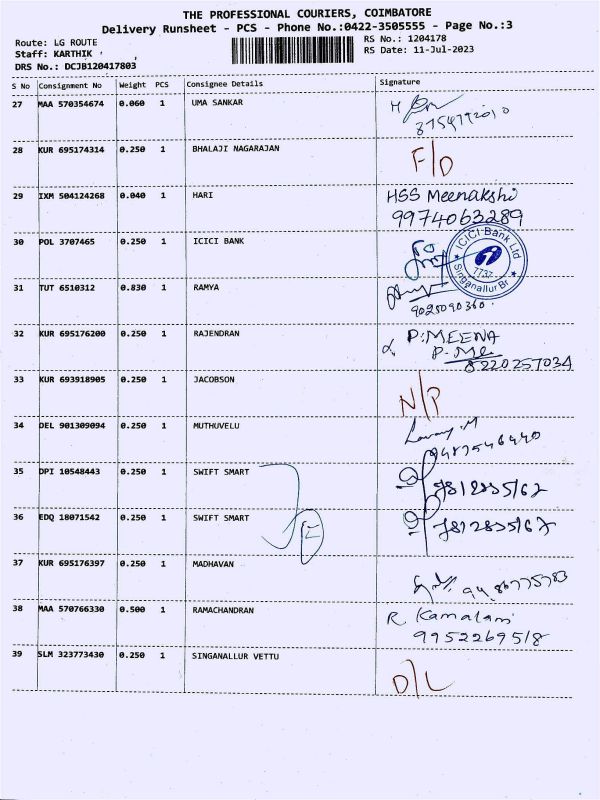 THE PROFESSIONAL COURIERS, COIMBATORE
Delivery Runsheet - PCS - Phone No.:0422-3505555 - Page No.:3
Route: LG ROUTE
RS No.: 1204178
Staff: KARTHIK
RS Date: 11-Jul-2023
DRS No.: DCJB120417803
S No Consignment No Weight PCS Consignee Details Signature
27 MAA 570354674 0.060 1 UMA SANKAR
28 KUR 695174314 0.250 1 BHALAJI NAGARAJAN F/D
29 IXM 504124268 0.040 1 HARI HSS Meenakshi
9974063289
30 POL 3707465 0.250 1 ICICI BANK
ICICI Bank Ltd
7737
Singanallur Br
31 TUT 6510312 0.830 1 RAMYA
9025090360
32 KUR 695176200 0.250 1 RAJENDRAN P.MEENA
8220257034
33 KUR 693918905 0.250 1 JACOBSON N/P
34 DEL 901309094 0.250 1 MUTHUVELU
9487546440
35 DPI 10548443 0.250 1 SWIFT SMART
36 EDQ 18071542 0.250 1 SWIFT SMART
37 KUR 695176397 0.250 1 MADHAVAN
38 MAA 570766330 0.500 1 RAMACHANDRAN R Kamalam
9952269518
39 SLM 323773430 0.250 1 SINGANALLUR VETTU D/L